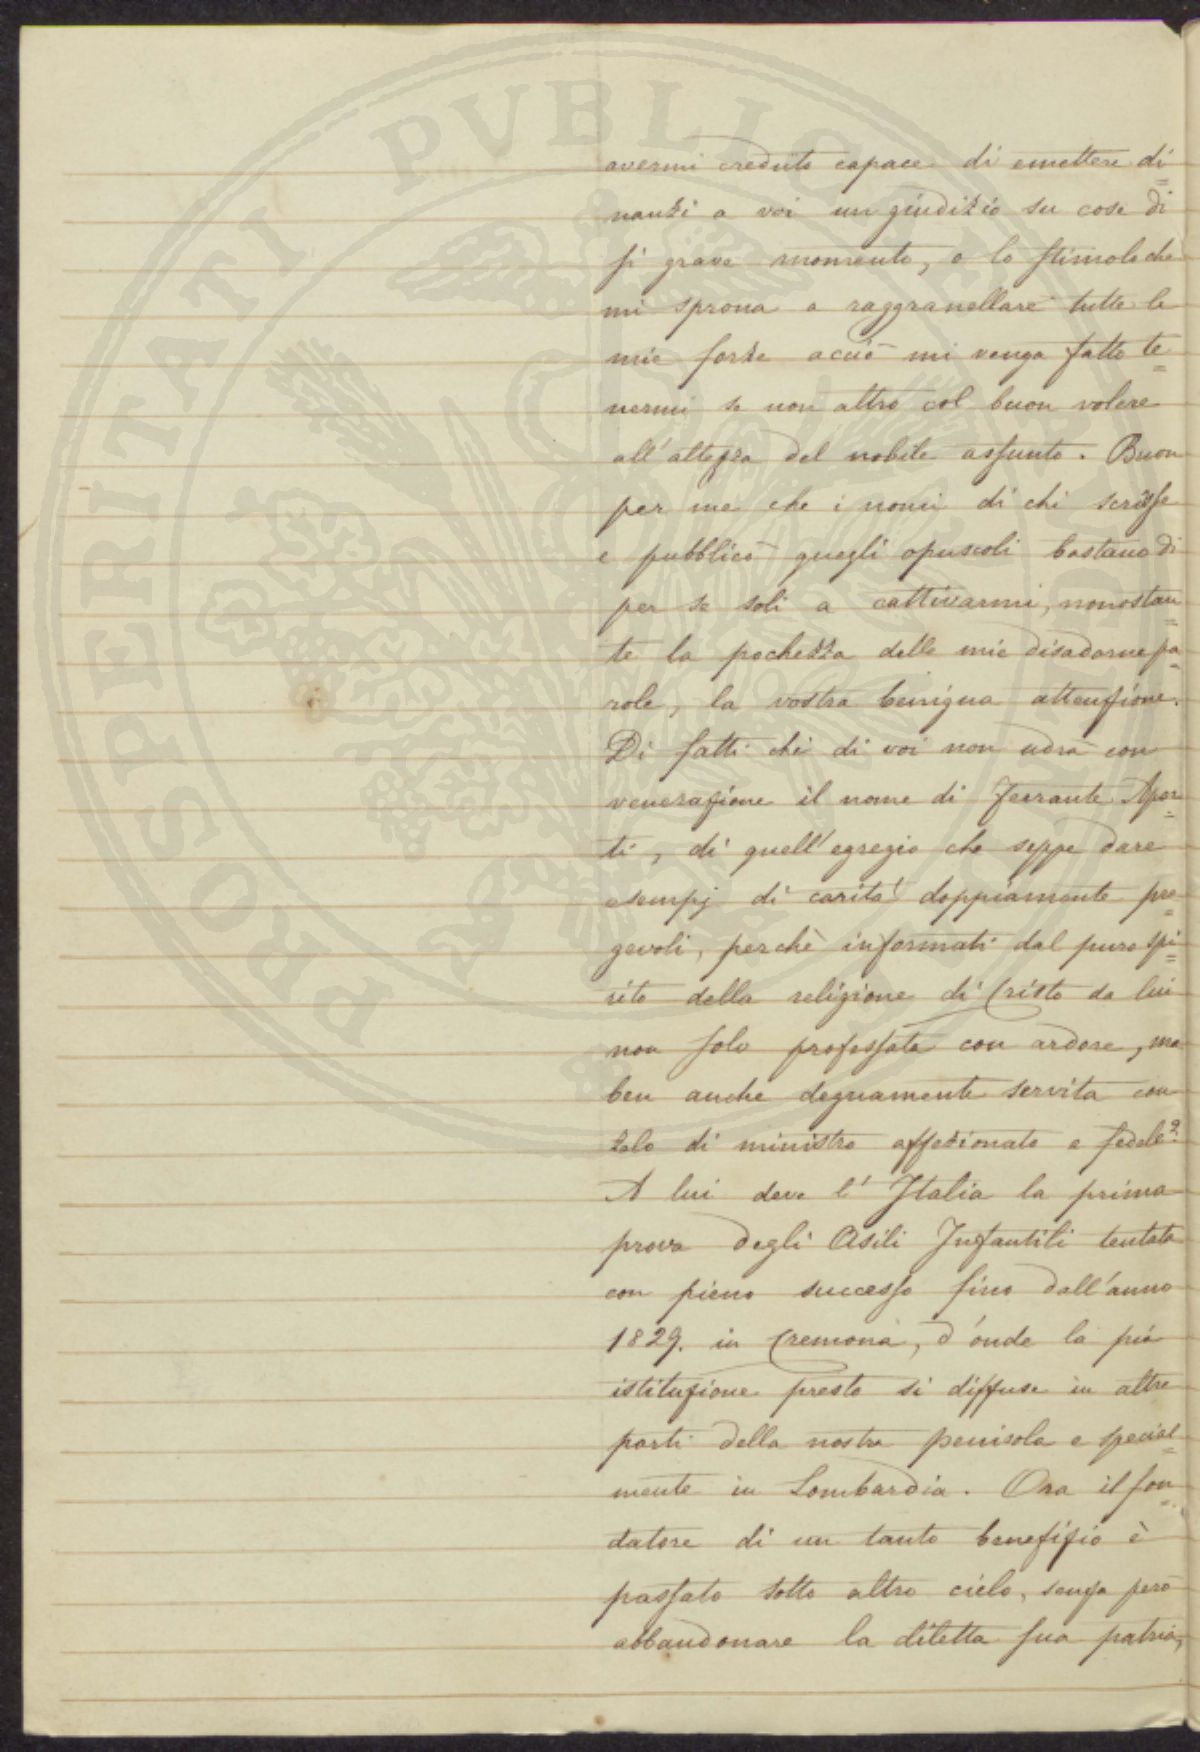 avermi creduto capace di emettere di=
nanzi a voi un giudizio su cose di
sì grave momento, e lo stimolo che
mi sprona a raggranellare tutte le
mie forze acciò mi venga fatto te=
nermi se non altro col buon volere
all'altezza del nobile assunto. Buon
per me che i nomi di chi scrisse
e pubblicò quegli opuscoli bastano di
per se soli a cattivarmi, nonostan=
te la pochezza delle mie disadorne pa=
role, la vostra benigna attenzione.
Di fatti chi di voi non udrà con
venerazione il nome di Ferrante Apor=
ti, di quell'egregio che seppe dare
esempj di carità doppiamente pre=
gevoli, perchè informati dal puro spi=
rito della religione di Cristo da lui
non solo professata con ardore, ma
ben anche degnamente servita con
zelo di ministro affezionato e fedele?
A lui deve l'Italia la prima
prova degli Asili Infantili tentata
con pieno successo fino dall'anno
1829. in Cremona, d'onde la pia
istituzione presto si diffuse in altre
parti della nostra penisola e special=
mente in Lombardia. Ora il fon=
datore di un tanto benefizio è
passato sotto altro cielo, senza però
abbandonare la diletta sua patria,
PROSPERITATI PVBLICAE